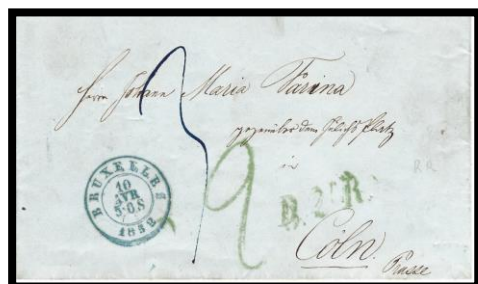 Herrn Johann Maria Farina
gegenüber dem Jülichs Platz
in
Cöln.
Prusse
BRUXELLES
10
AVR
5-6S
1852
3
9
B. 2 R.
RR